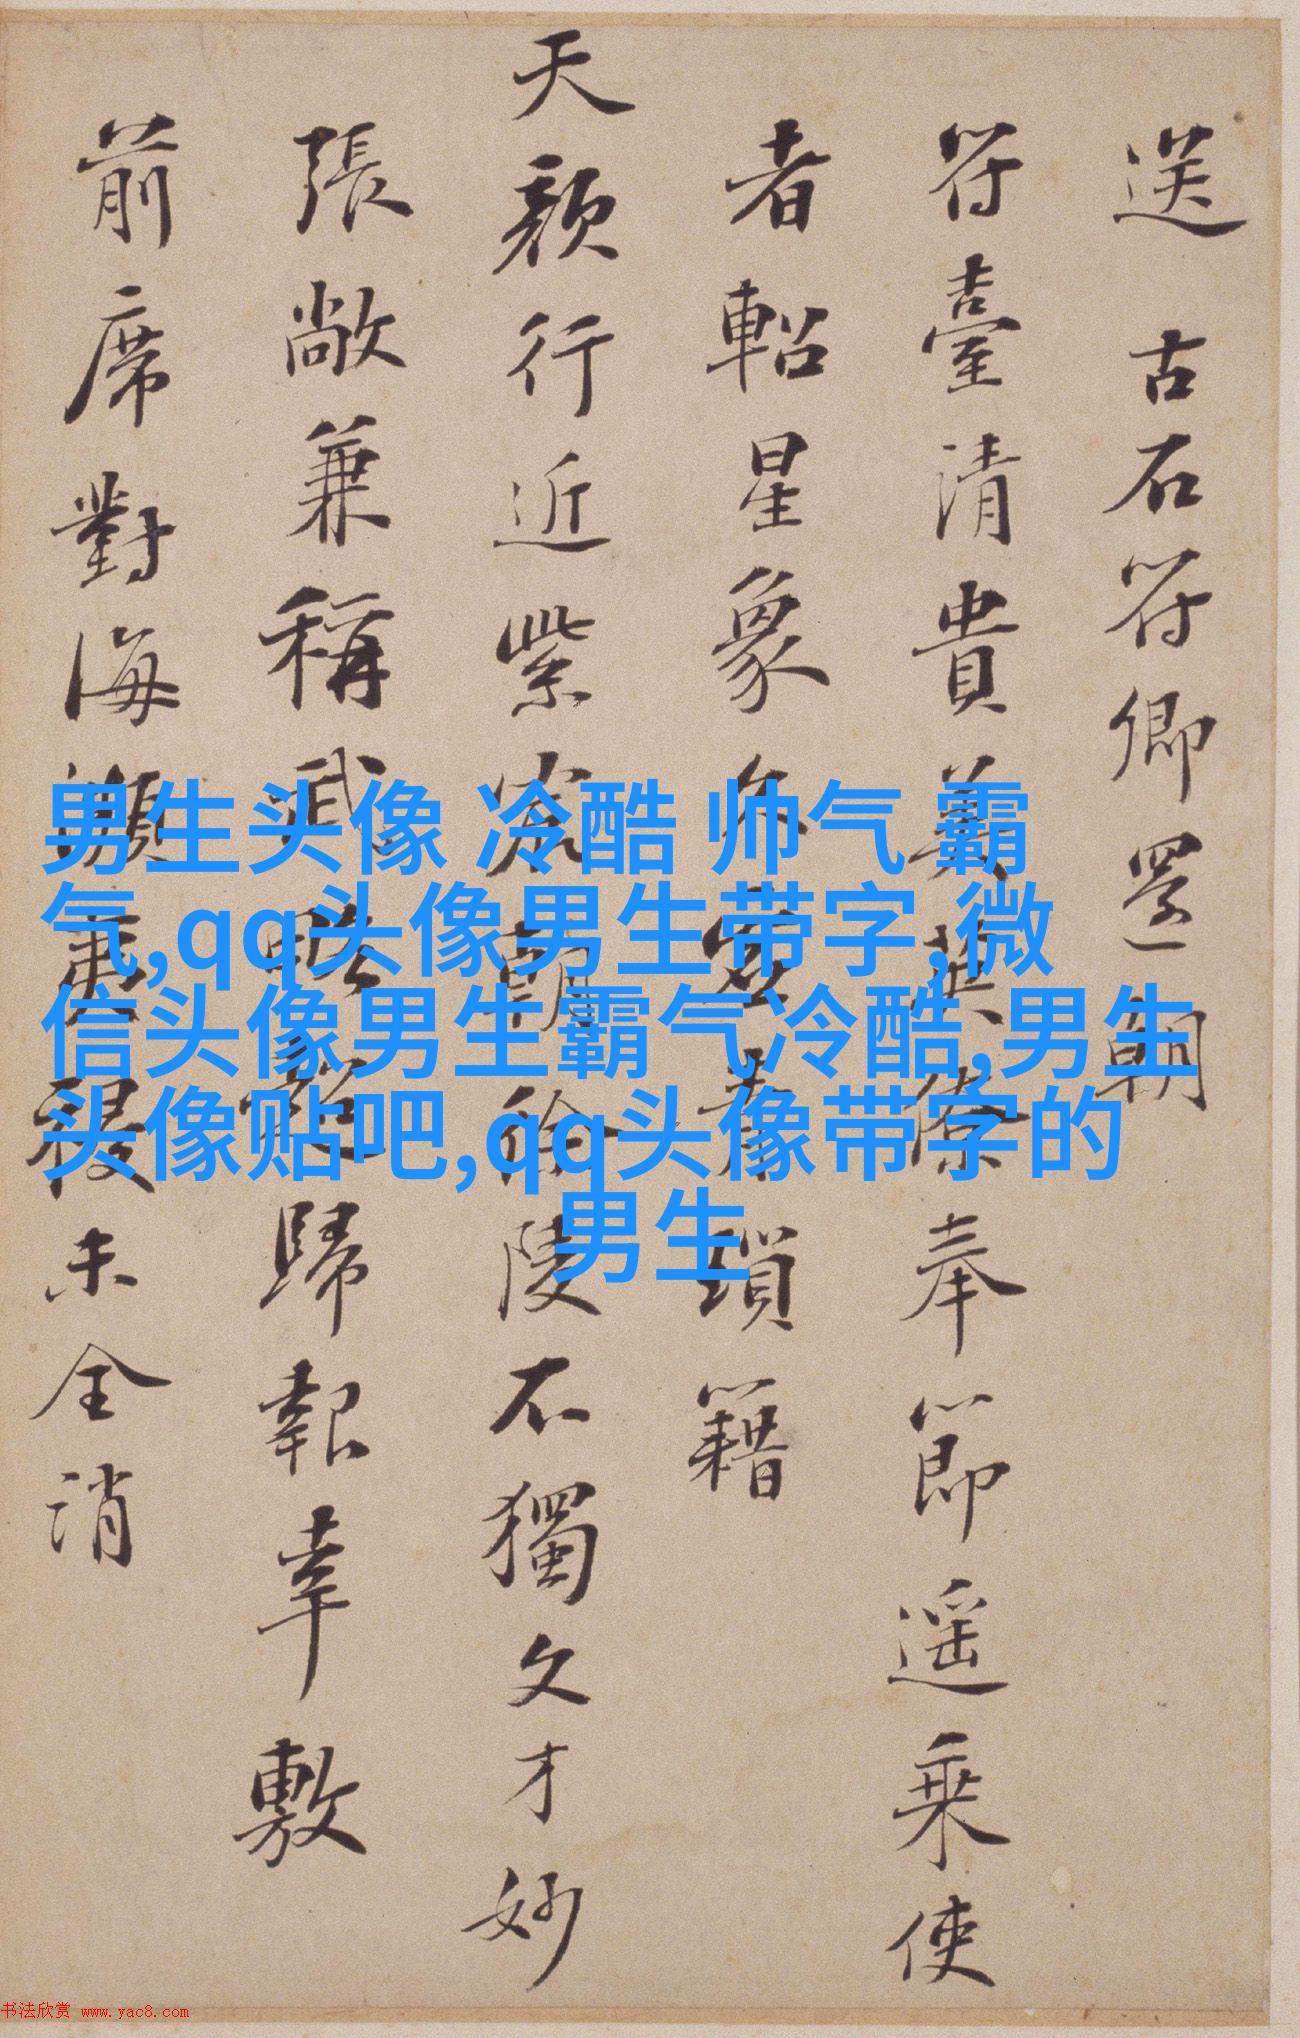 送 古石符卿還朝
符臺清貴美英僚奉節遥乘使
者軺星象久青瑣籍
天顏行近紫宸朝徐陵不獨文才妙
張敞兼稱武略超歸報幸敷
前席對海瀕夷祲未全消
男生头像 冷酷 帅气 霸
气,qq头像男生带字,微
信头像男生霸气冷酷,男生
头像贴吧,qq头像带字的
男生
书法欣赏 www.yac8.com